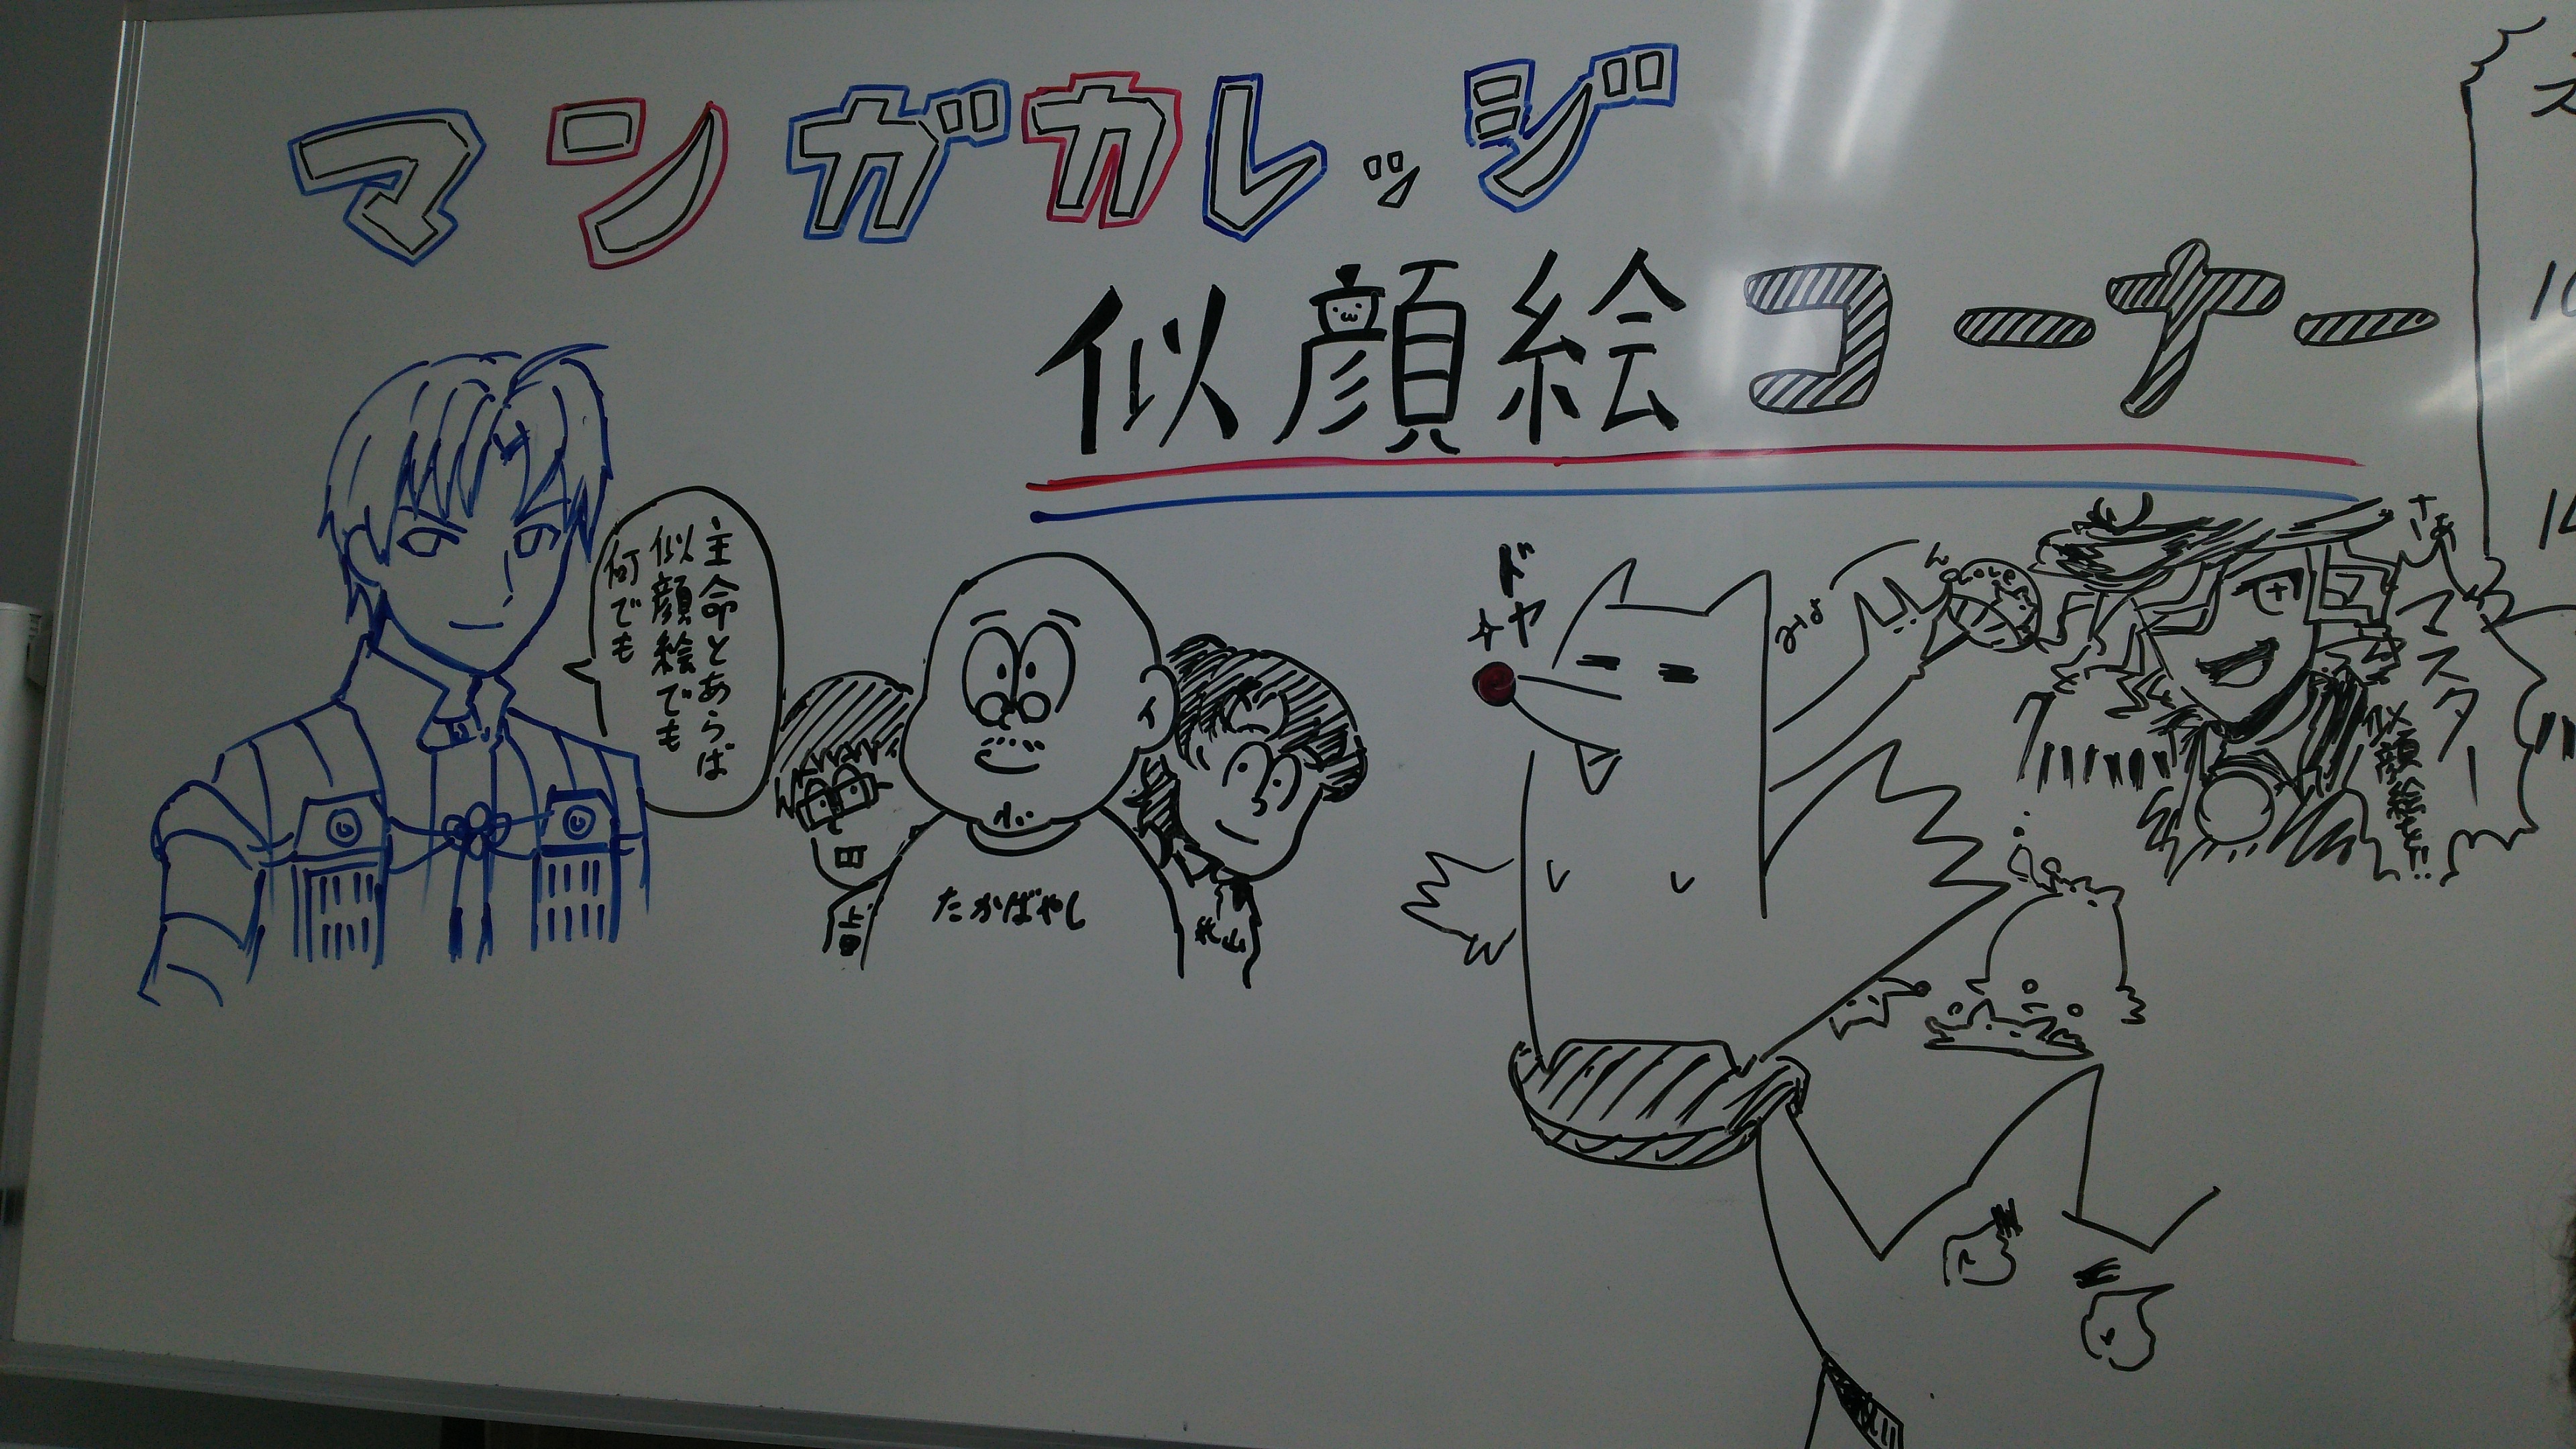 マンガカレッジ
似顔絵コーナー
主命とあらば
似顔絵でも
何でも
たかばやし
ドヤ
さぁ
マスター
似顔絵を!!
Love